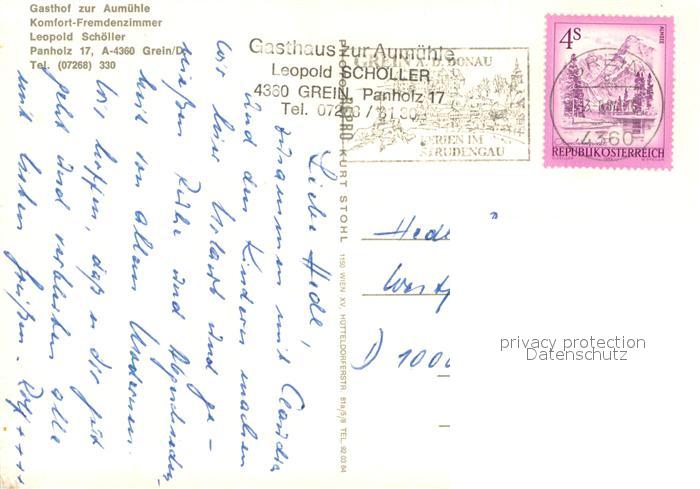 Gasthof zur Aumühle
Komfort-Fremdenzimmer
Leopold Schöller
Panholz 17, A-4360 Grein/D.
Tel. (07268) 330
Gasthaus zur Aumühle
Leopold SCHÖLLER
4360 GREIN, Panholz 17
Tel. 07268 / 8130
GREIN A. D. DONAU
FERIEN IM
STRUDENGAU
4S
ALMSEE
GREIN
4360
REPUBLIK ÖSTERREICH
KURT STOHL
1150 WIEN XV, HÜTTELDORFERSTR. 81a/5/8 TEL. 92 03 84
Liebe Hedl,
zusammen mit Claudia
und den Kindern machen
wir hier Urlaub und ge-
nießen Ruhe und
weit von allem
Wir hoffen, daß es dir gut
geht und verbleiben alle
mit lieben Grüßen. Rolf ++++
Hedl
D 100
privacy protection
Datenschutz